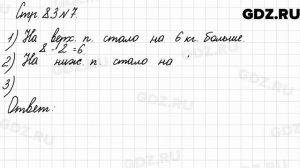 GDZ.RU
Стр. 83 № 7.
1) На верх. п. стало на 6 кг. больше.
8 - 2 = 6
2) На ниж. п. стало на
3)
Ответ:
GDZ.RU